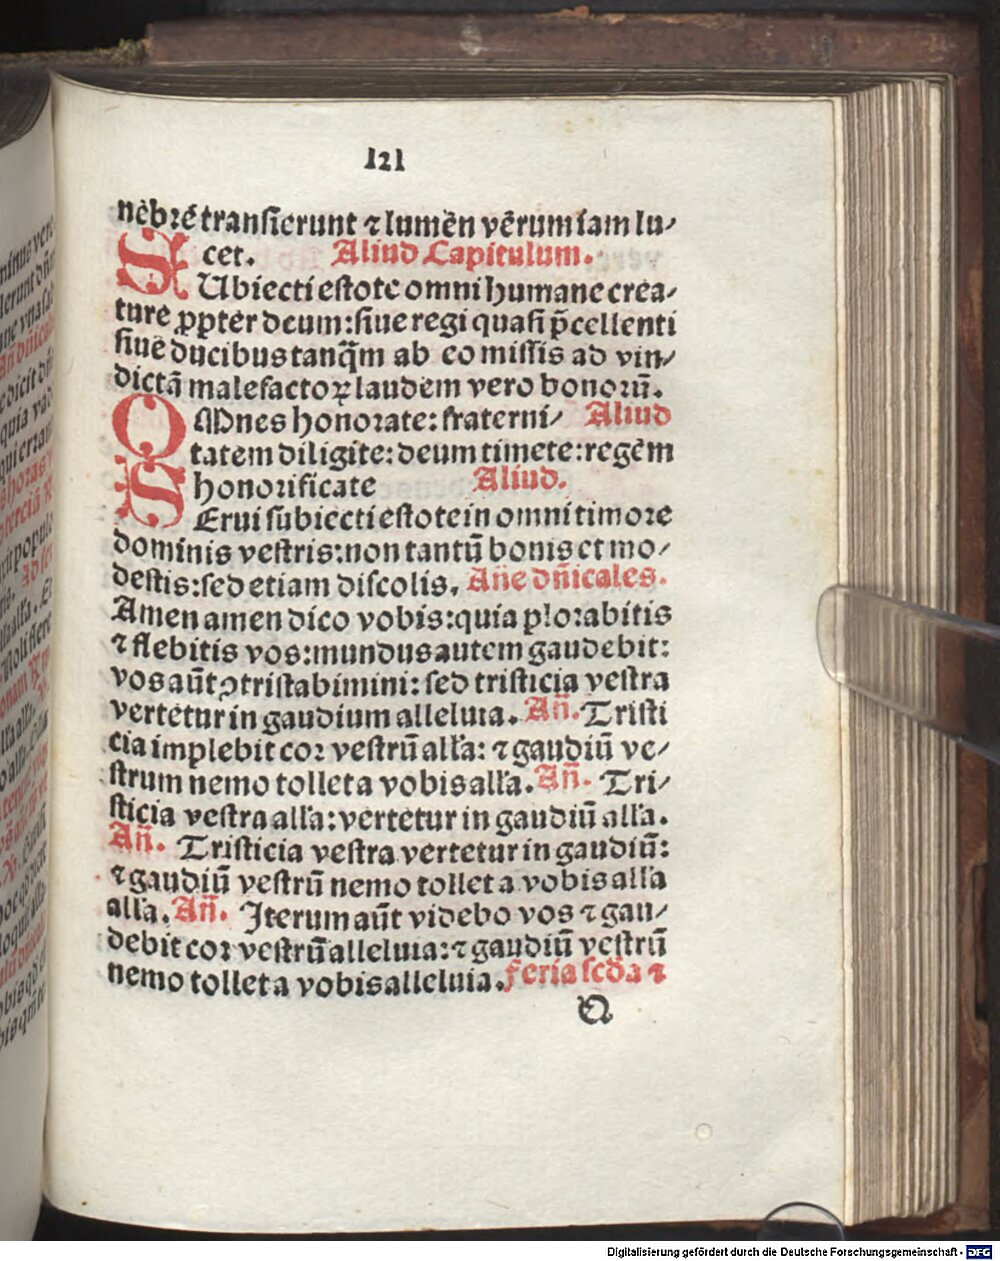 121
nēbrē transierunt ⁊ lumēn vērum iam lu⸗
cet. Aliud Capitulum.
SUbiecti estote omni humane crea⸗
ture ꝓpter deum: siue regi quasi p̄cellenti
siue ducibus tanq̄m ab eo missis ad vin⸗
dictā malefactoꝝ laudem vero bonorū.
OMnes honorate: fraterni⸗ Aliud
tatem diligite: deum timete: regēm
honorificate Aliud.
SErui subiecti estote in omni timore
dominis vestris: non tantū bonis et mo⸗
destis: sed etiam discolis. Añe dñicales.
Amen amen dico vobis: quia plorabitis
⁊ flebitis vos: mundus autem gaudebit:
vos aūt ꝯtristabimini: sed tristicia vestra
vertetur in gaudium alleluia. Añ. Tristi
cia implebit cor vestrū alľa: ⁊ gaudiū ve⸗
strum nemo tollet a vobis alľa. Añ. Tri⸗
sticia vestra alľa: vertetur in gaudiū alľa.
Añ. Tristicia vestra vertetur in gaudiū:
⁊ gaudiū vestrū nemo tollet a vobis alľa
alľa. Añ. Iterum aūt videbo vos ⁊ gau⸗
debit cor vestrū alleluia: ⁊ gaudiū vestrū
nemo tollet a vobis alleluia. feria scďa ⁊
Q
Digitalisierung gefördert durch die Deutsche Forschungsgemeinschaft - DFG